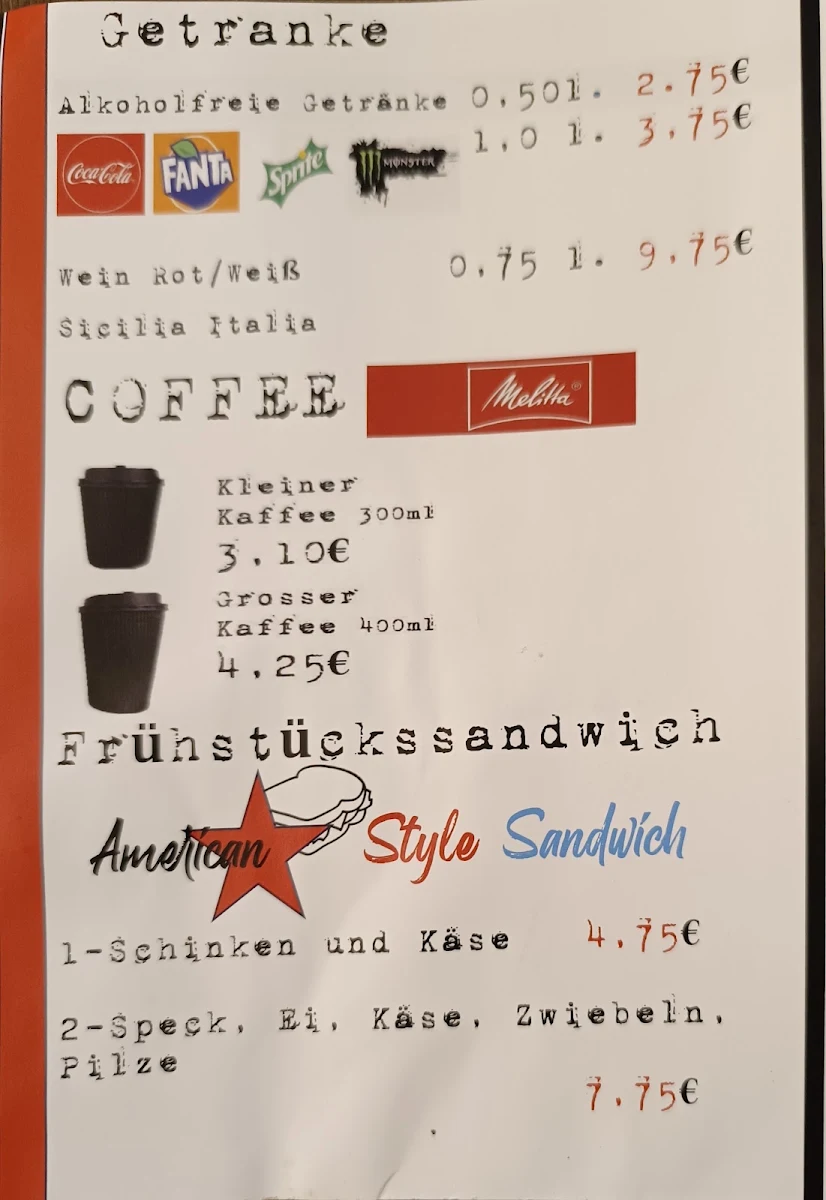 Getranke
Alkoholfreie Getränke 0,50l. 2.75€
1,0 l. 3,75€
Coca-Cola FANTA Sprite MONSTER
Wein Rot/Weiß 0,75 l. 9,75€
Sicilia Italia
COFFEE Melitta®
Kleiner
Kaffee 300ml
3,10€
Grosser
Kaffee 400ml
4,25€
Frühstückssandwich
American Style Sandwich
1-Schinken und Käse 4,75€
2-Speck, Ei, Käse, Zwiebeln,
Pilze
7,75€